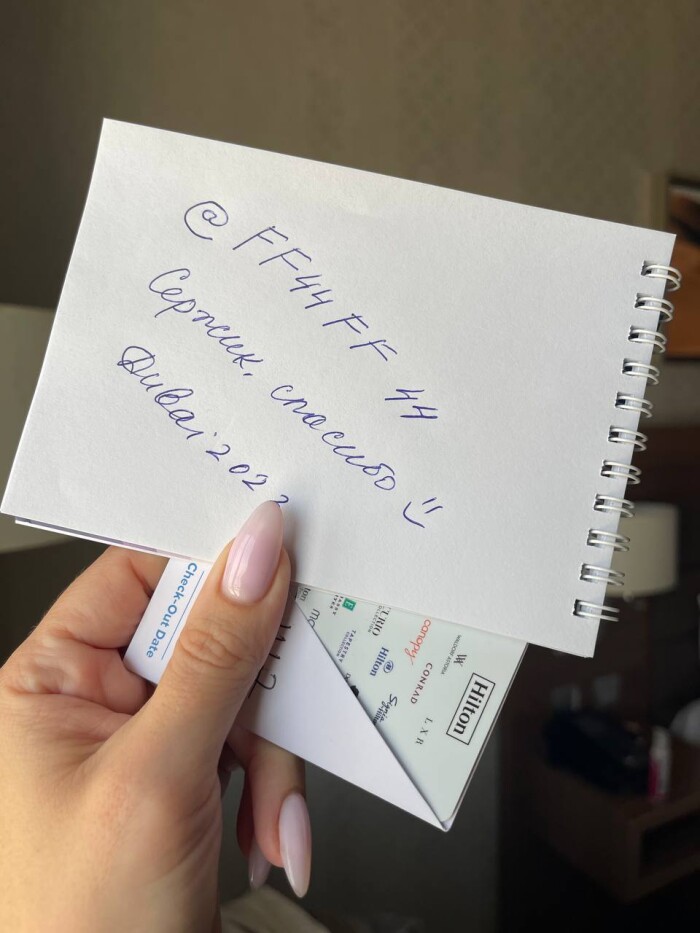 @FF44FF44
Сержик, спасибо
Dubai 202
Check-Out Date
Hilton
WALDORF ASTORIA
L X R
CONRAD
canopy
Signia
Hilton
CURIO
COLLECTION
TAPESTRY
COLLECTION